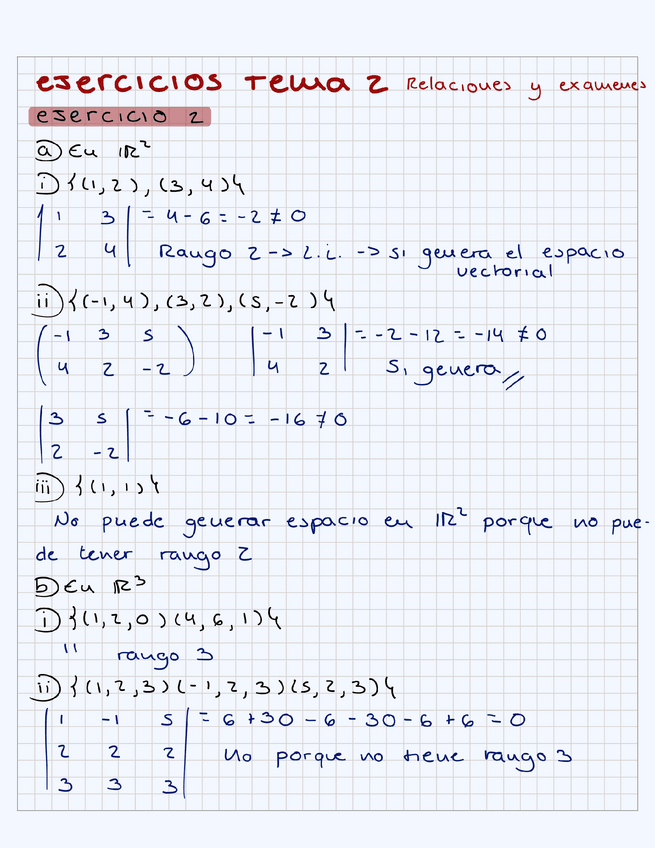 ejercicios Tema 2 Relaciones y examenes
ejercicio 2
a) En ℝ²
i) {(1,2), (3,4)}
| 1 3 | = 4 - 6 = -2 ≠ 0
| 2 4 | Rango 2 -> L.i. -> si genera el espacio
vectorial
ii) {(-1,4), (3,2), (5,-2)}
( -1 3 5 ) | -1 3 | = -2 - 12 = -14 ≠ 0
( 4 2 -2 ) | 4 2 | Si genera //
| 3 5 | = -6 - 10 = -16 ≠ 0
| 2 -2 |
iii) {(1,1)}
No puede generar espacio en ℝ² porque no pue-
de tener rango 2
b) En ℝ³
i) {(1,2,0) (4,6,1)}
" rango 3
ii) {(1,2,3) (-1,2,3) (5,2,3)}
| 1 -1 5 | = 6 + 30 - 6 - 30 - 6 + 6 = 0
| 2 2 2 | No porque no tiene rango 3
| 3 3 3 |